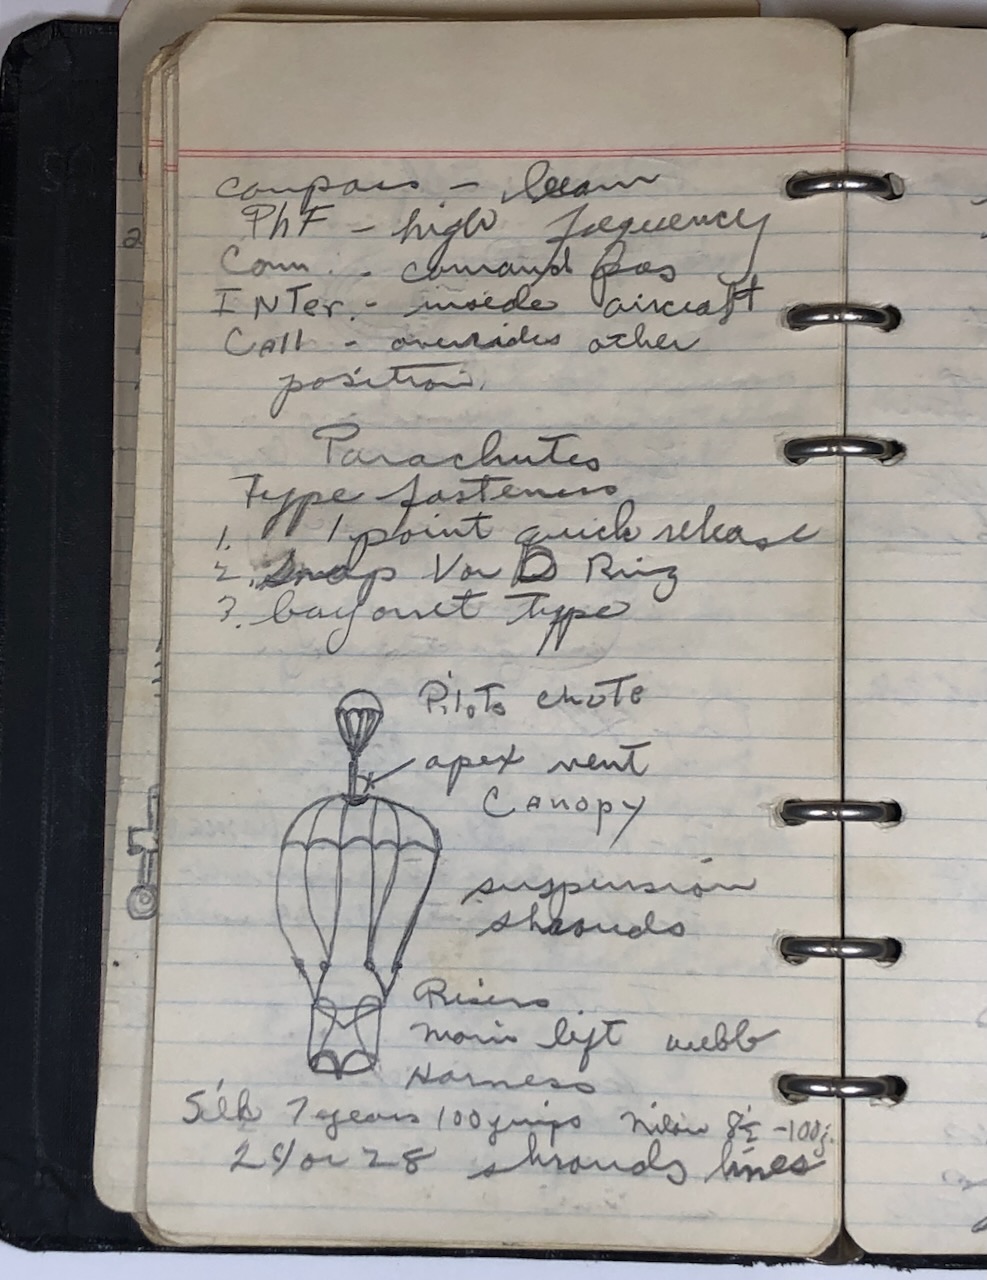 compass - beam
PhF - high frequency
Com. - comand pos
INTer. - inside aircraft
Call - overrides other
position.
Parachutes
Type fasteners
1. 1 point quick release
2. Snap V or D Ring
3. bayonet type
Pilots chute
apex vent
Canopy
suspension
shrouds
Risers
Main lift webb
Harness
Silk 7 years 100 jumps Nilon 8½ - 100 j.
24 or 28 shrouds lines
2